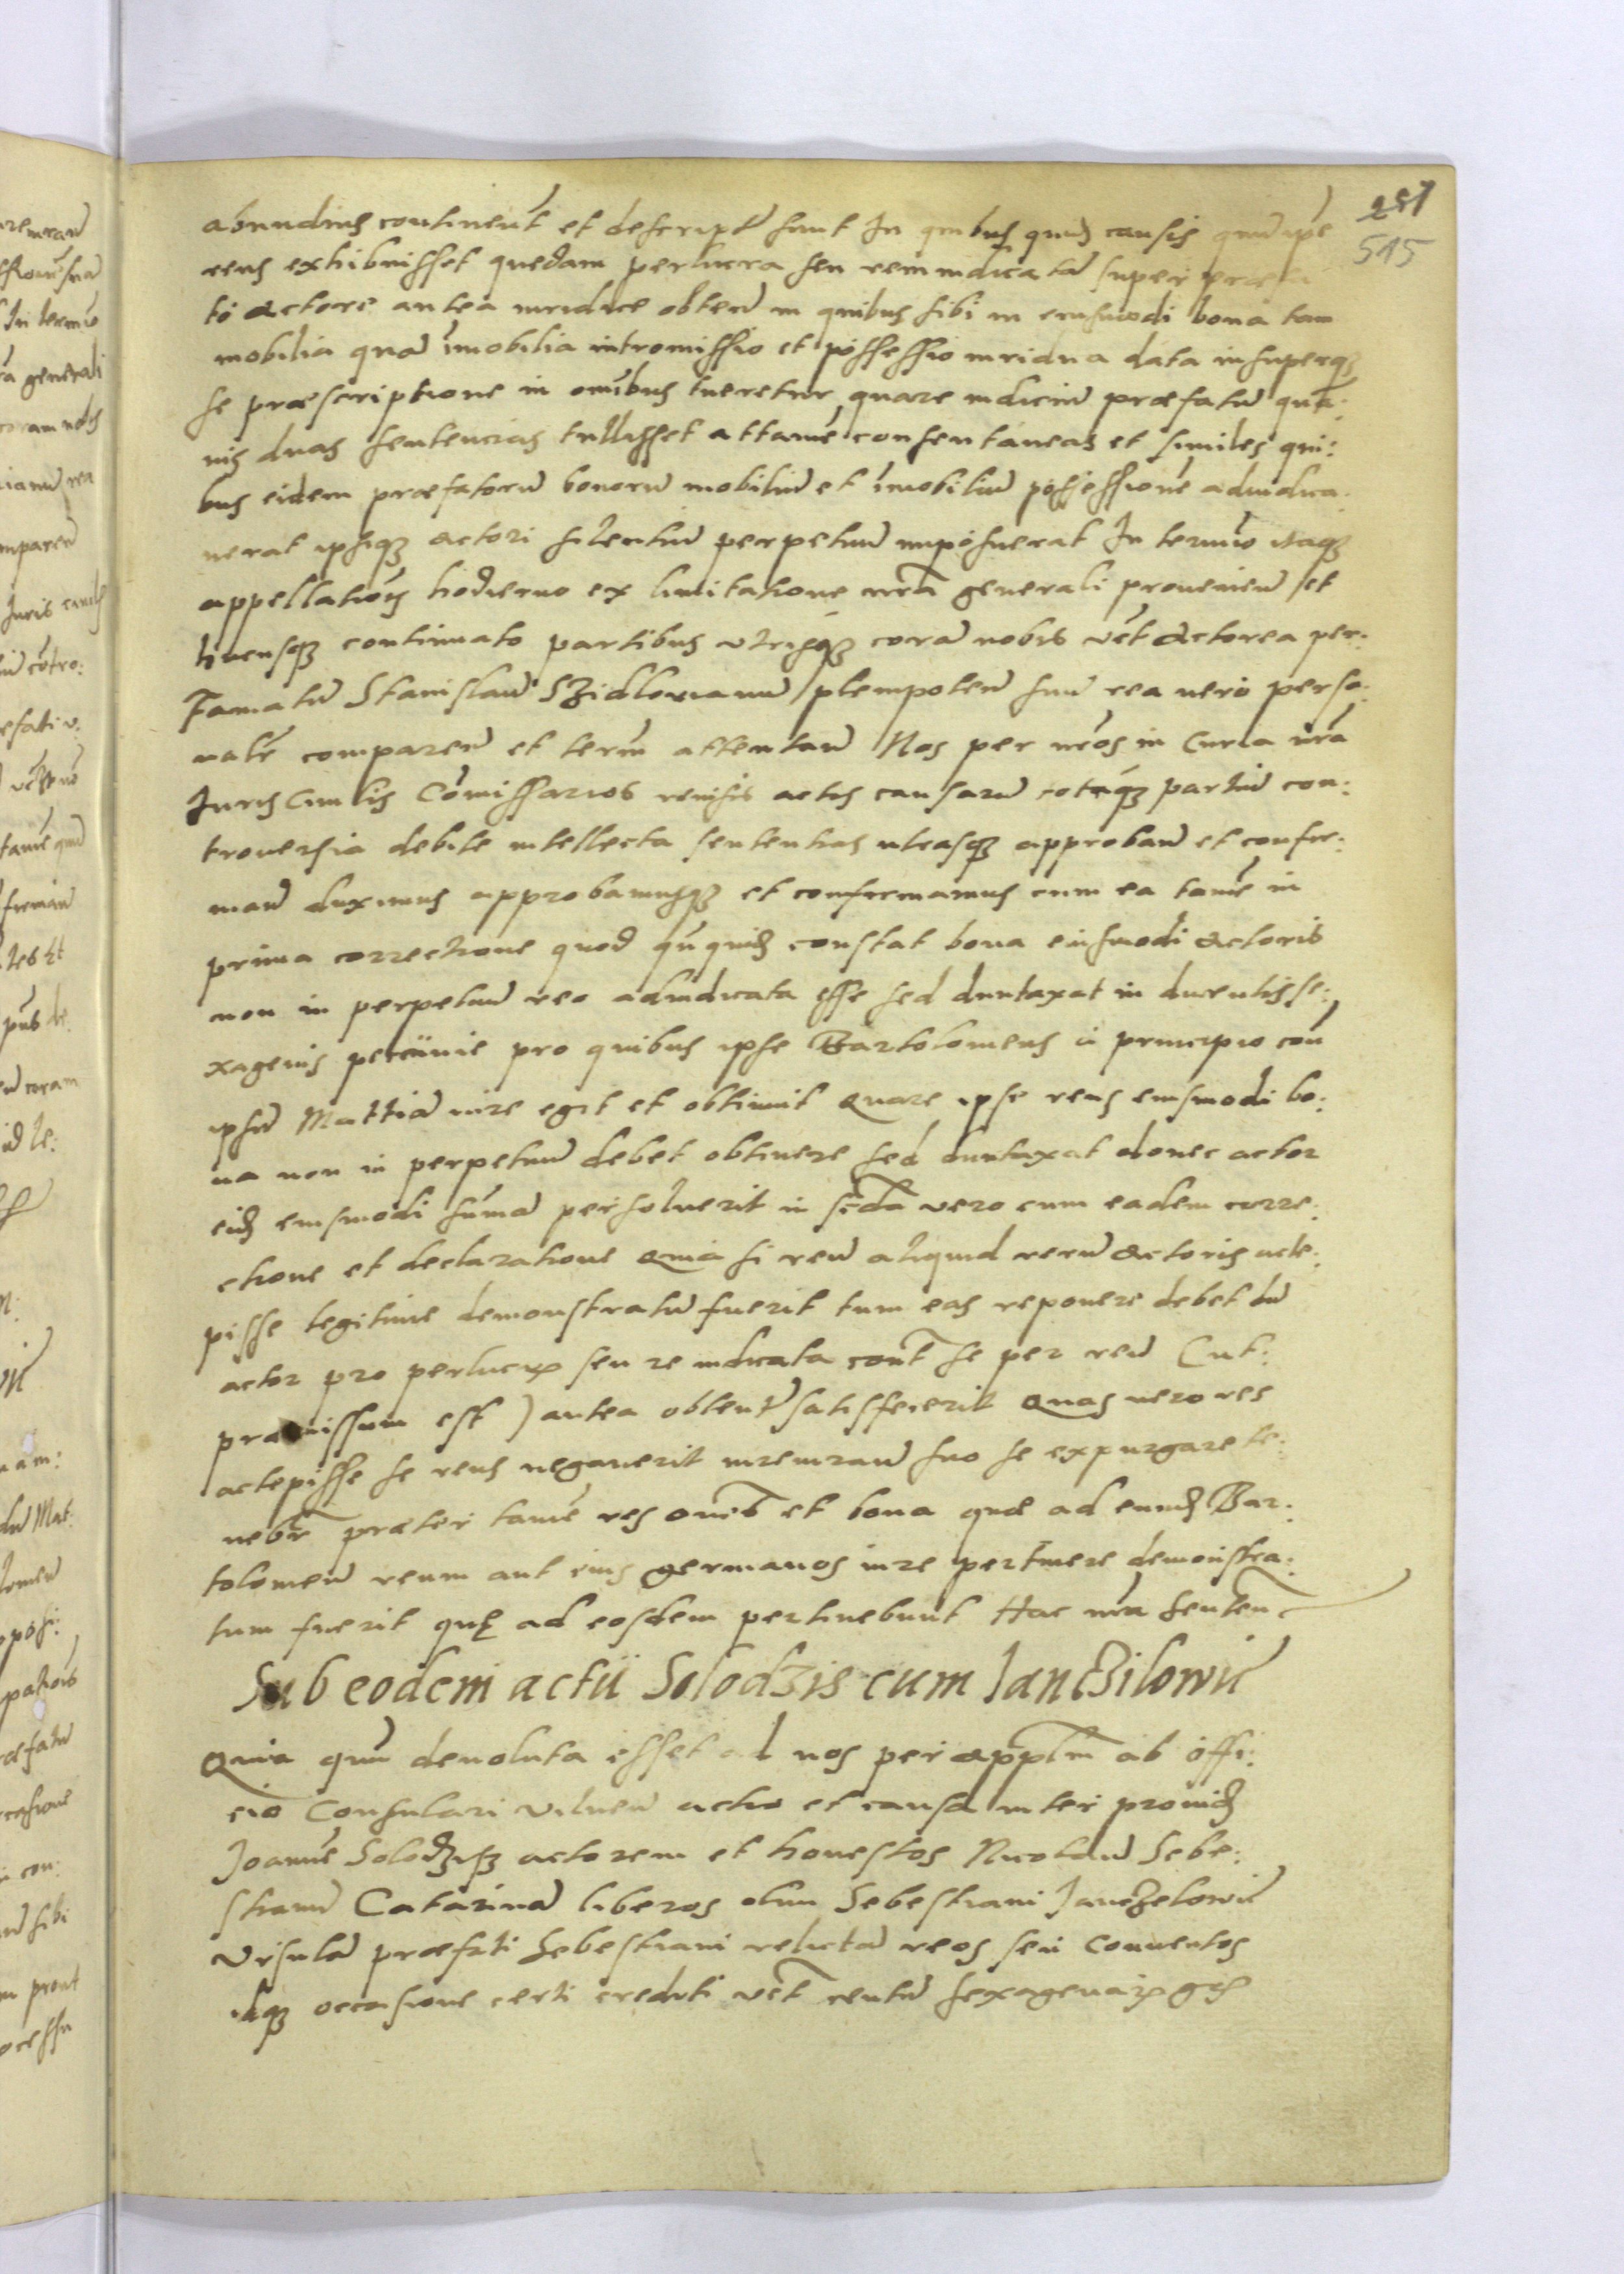 257
515
abundius continent et descript sunt In quibus quid causis quum ipe
reus exhibuisset quedam perlucra seu rem iudicatam super præfa
to actore antea iuridice obten in quibus sibi in eiusmodi bona tam
mobilia qua imobilia intromissio et possessio iuridica data insuperq
se præscriptione in omibus tueretur, quare iudiciu præfatu qua:
nis duas sententias tulisset attame consentaneas et similes qui:
bus eidem præfatoru bonoru mobiliu et imobiliu possessione adiudica:
uerat ipsiq actori silentiu perpetuu imposuerat In termio itaq
appellationis hodierno ex limitatione nra generali proueniem et
hucusq continuato partibus utrisq cora nobis vet actorea per:
Famatu Stanislau Szidlovianu plenipoten suu rea uero perso:
nale comparen et term attentan Nos per nros in Curia nra
Iuris Ciuilis Comissarios reuisis actis causaru totaq partiu con:
trouersia debite intellecta sententias utrasq approban et confir:
man duximus approbamusq et confirmamus cum ea tame in
prima correctione quod ququid constat bona eiusmodi actoris
non in perpetuu reo adiudicata esse sed duntaxat in ducentis se:
xagenis pecunie pro quibus ipse Bartolomeus a principio con
ipsu Mattia iure egit et obtinuit Quare ipse reus eiusmodi bo:
na non in perpetuu debet obtinere sed duntaxat donec actor
eid eiusmodi suma persoluerit in scda vero cum eadem corre:
ctione et declaratione Quia si reu aliquid reru actoris acte:
pisse legitime demonstratu fuerit tum eas reponere debet du
actor pro perlucr seu re iudicata cont se per reu (ut:
præmissum est) antea obtent satisfecerit Quas uero res
actepisse se reus negauerit iureiuran suo se expurgare te:
nebr præter tame res omes et bona quæ ad eund Bar:
tolomeu reum aut eius germanos iure pertinere demonstra:
tum fuerit quę ad eosdem pertinebunt Hac nra senten
Sub eodem actu Solodzis cum Janczilowic
Quia quu deuoluta esset ad nos per applm ab offi:
cio Consulari Vilnen actio et causa inter prouid
Joanne Solodzis actorem et honestos Nicolau Sebe:
stianu Catarina liberos olim Sebestiani Janczelowic
Vrsula præfati Sebestiani relicta reos seu conuentos
idq occasione certi crediti vet centu sexagenar gr